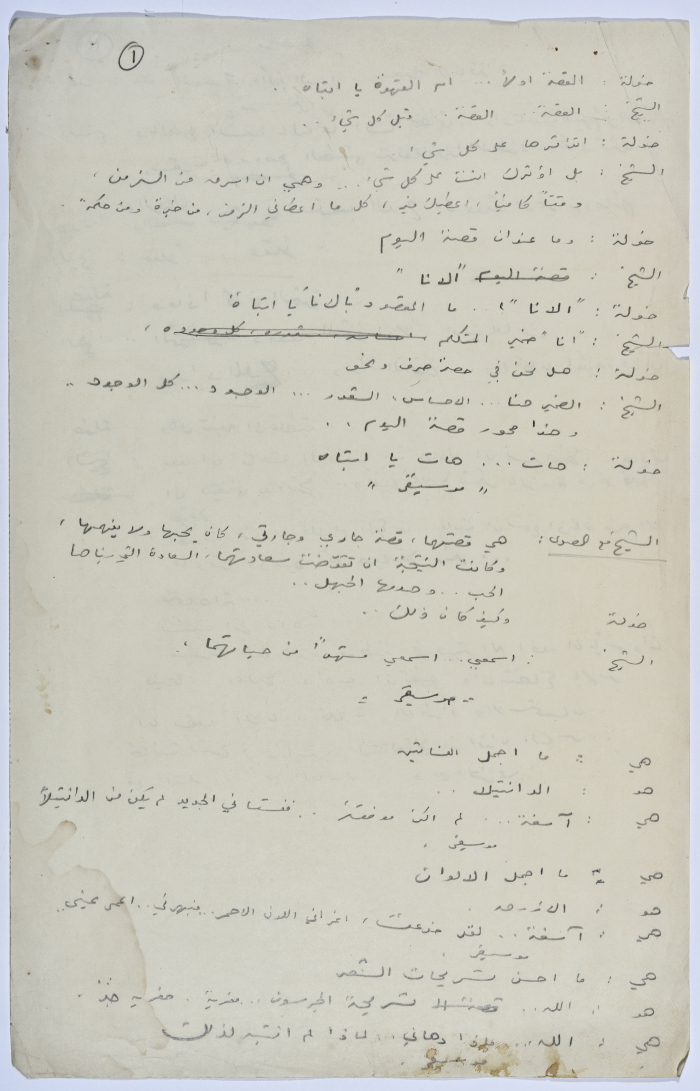 ١
خولة : القصة اولاً ... ام القهوة يا ابتاه ..
الشيخ : القصة . القصة .. قبل كل شيء ..
خولة : اتؤثرها على كل شيء
الشيخ : بل اؤثرك انت على كل شيء ... وهمي ان اسرق من الزمن ،
وقتاً كافياً ، اعطيك فيه ، كل ما اعطاني الزمن ، من خبرة ومن حكمة .
خولة : وما عنوان قصة اليوم
الشيخ : قصة اليوم "الانا"
خولة : "الانا" ! .. ما المقصود "بالانا" يا ابتاه
الشيخ : "انا" ضمير المتكلم
خولة : هل نحن في حصة صرف ونحو
الشيخ : الضمير هنا ... الاحساس ، الشعور ... الوجود ... كل الوجود ..
وهذا محور قصة اليوم ..
خولة : هات ... هات يا ابتاه
" موسيقى "
الشيخ مع : هي قصتهما ، قصة جاري وجارتي ، كان يحبها ولا يفهمها ،
وكانت النتيجة ان تقوّضت سعادتهما ، السعادة التي بناها
الحب .. وهدمها الجهل ..
خولة وكيف كان ذلك ..
الشيخ : اسمعي .. اسمعي من حياتهما .
" موسيقى "
هي : ما اجمل الفساتين
هو : الدانتيلا ..
هي : آسفة ... لم اكن موفقة .. فستاني الجديد لم يكن من الدانتيلا
موسيقى .
هي : ما اجمل الالوان
هو : الازرق .
هي : آسفة .. لقد خدعت ، اغراني اللون الاحمر ..
موسيقى .
هي : ما احسن تسريحات الشعر
هو : الله .. تسريحة الجرسون ..
هي : الله ... ماذا دهاني .. لماذا لم انتبه لذلك
موسيقى